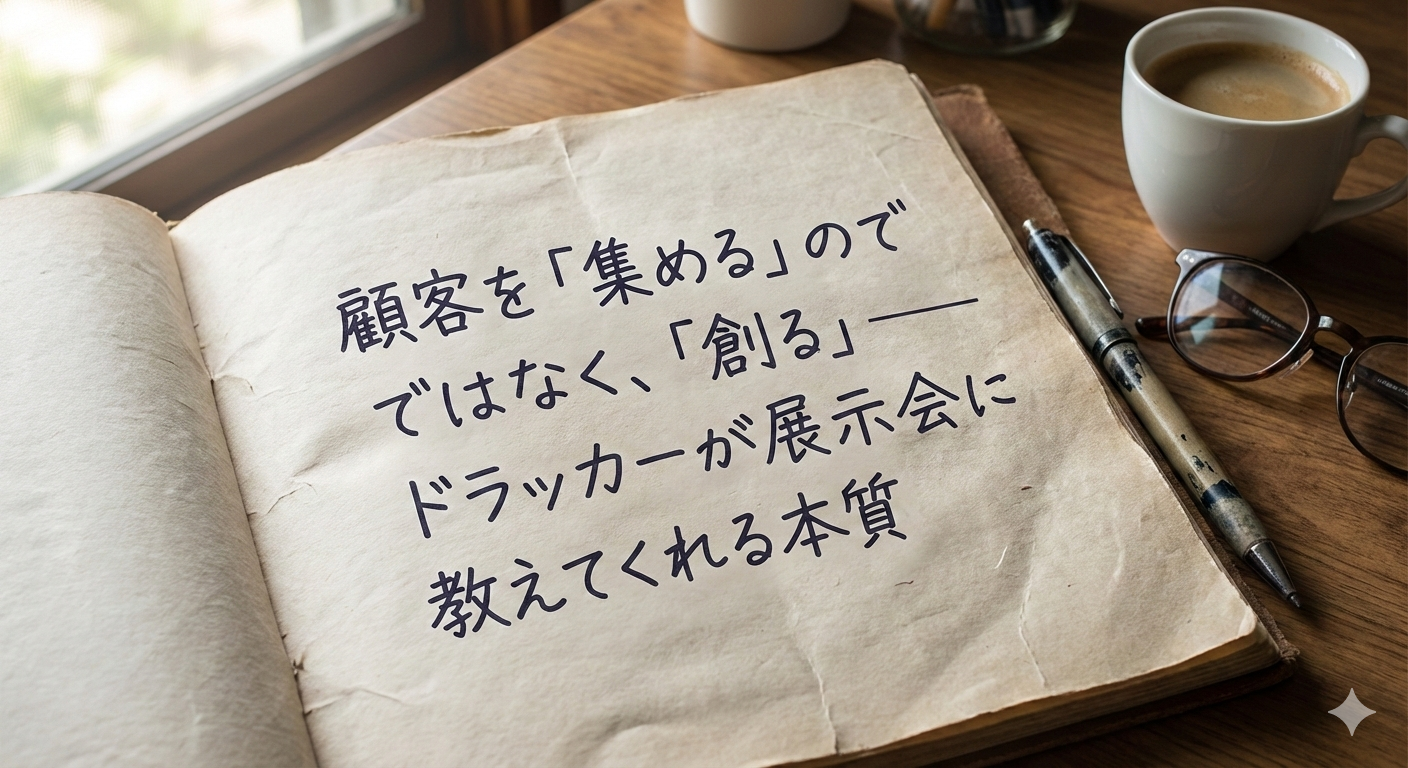 顧客を「集める」ので
ではなく、「創る」──
ドラッカーが展示会に
教えてくれる本質